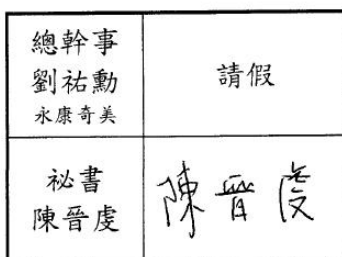 總幹事
劉祐勳
永康奇美
請假
祕書
陳晉虔
陳晉虔